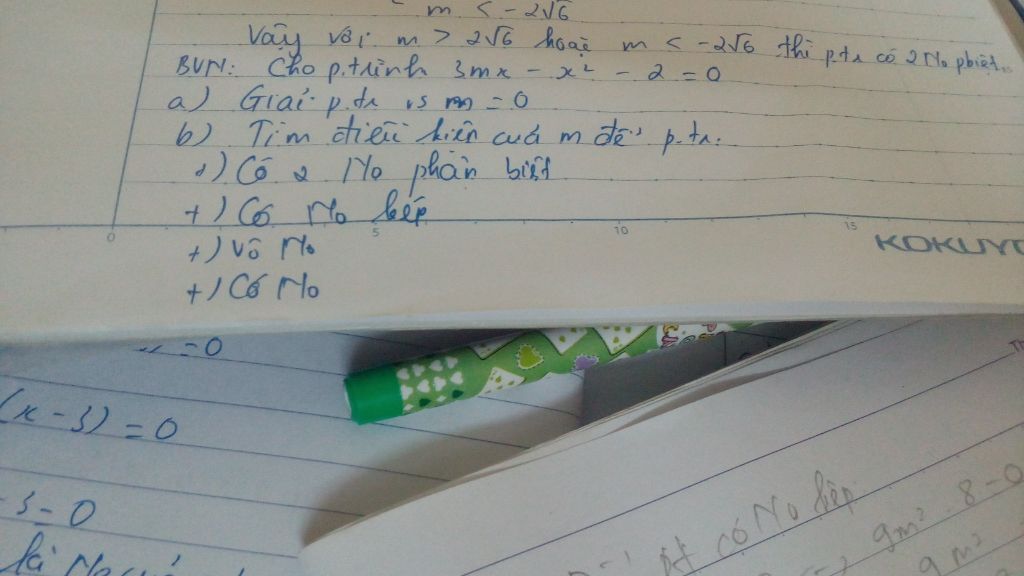 m < -2√6
Vậy với m > 2√6 hoặc m < -2√6 thì p.tr có 2 No pbiệt.
BVN: Cho p.trình 3mx - x² - 2 = 0
a) Giải p.tr vs m = 0
b) Tìm điều kiện của m để p.tr:
+) Có 2 No phân biệt
+) Có No kép
+) Vô No
+) Có No
0 5 10 15
KOKUYO
= 0
(x - 3) = 0
- 3 = 0
là No
pt có No kép
9m² - 8 = 0
9m²